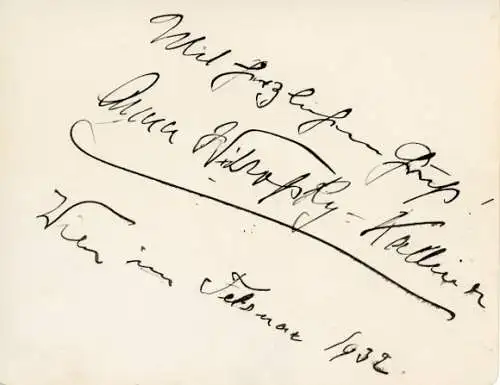 Mit herzlichem Gruß!
Anna Kallina
Wien im Februar 1932.